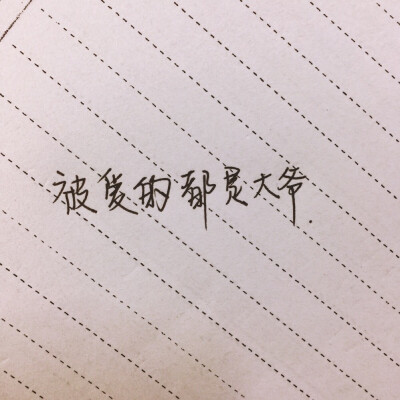 被爱的都是大爷.